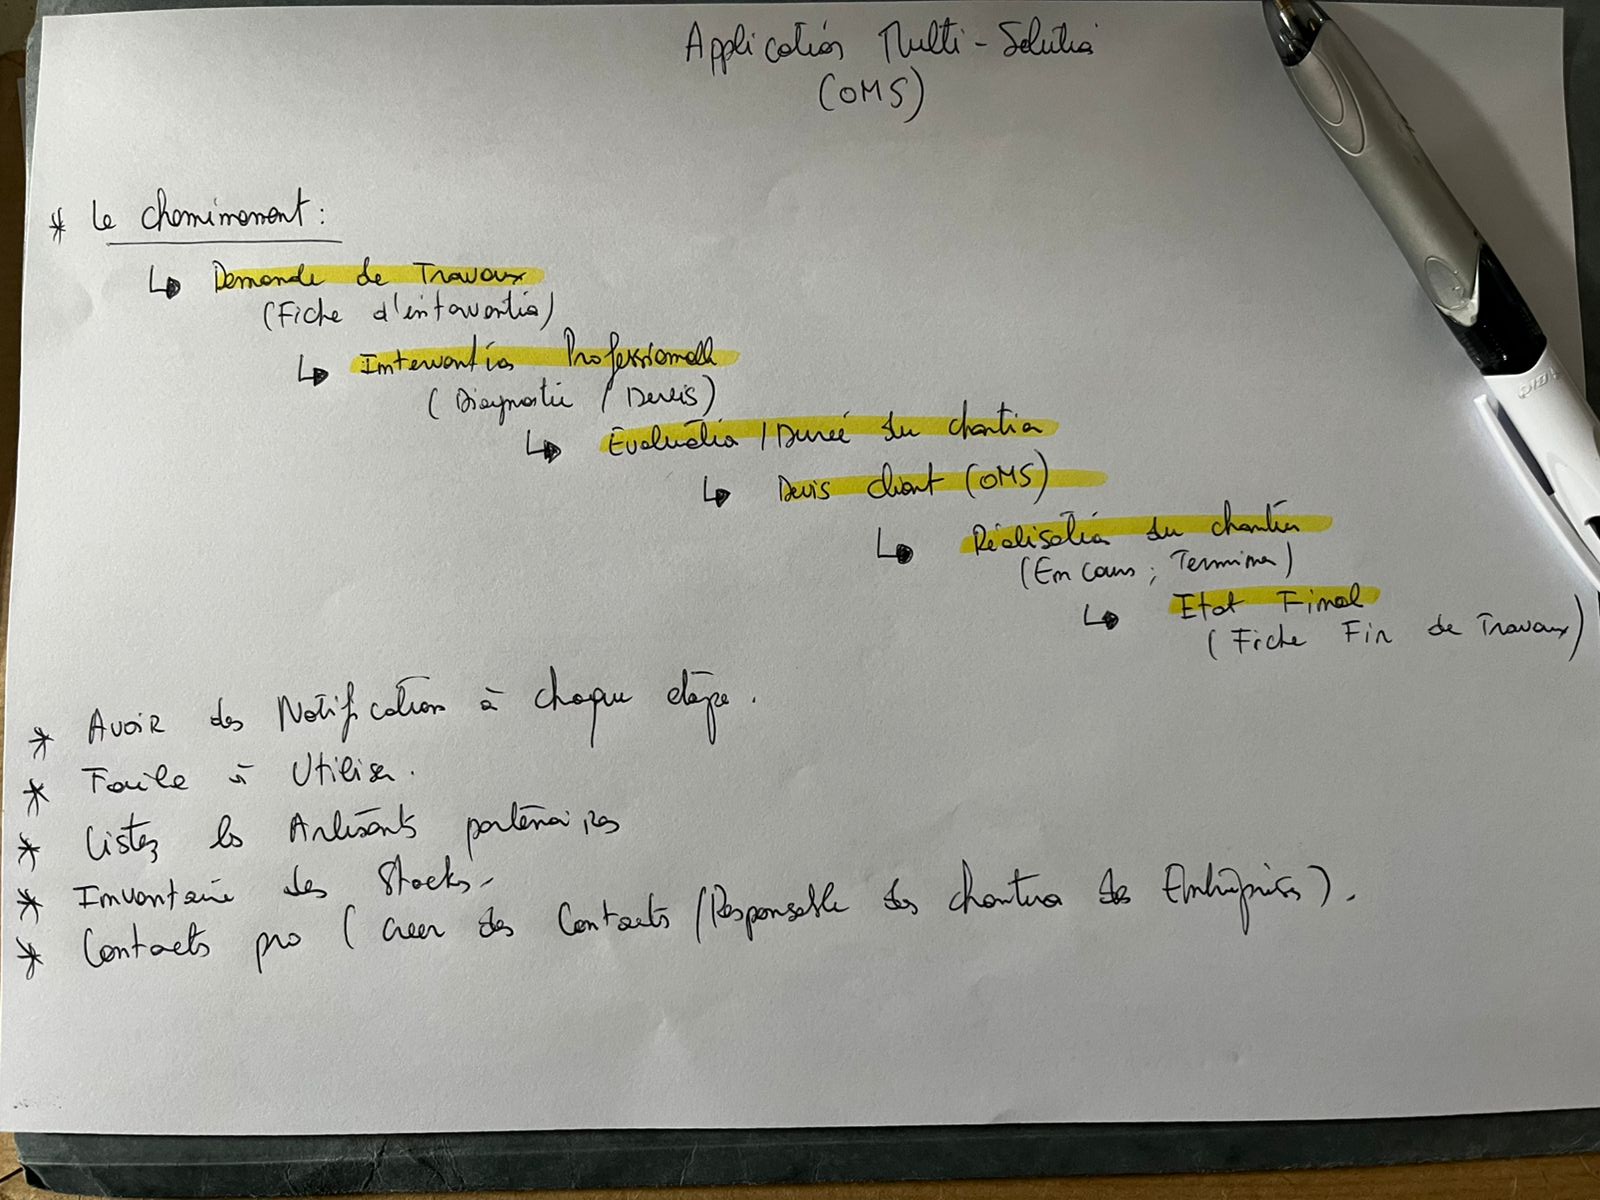 Application Multi-Solution
(OMS)
* Le Cheminement :
↳ Demande de Travaux
(Fiche d'intervention)
↳ Intervention Professionnelle
(Diagnostic / Devis)
↳ Evaluation / Durée du chantier
↳ Devis client (OMS)
↳ Réalisation du chantier
(En Cours ; Terminer)
↳ Etat Final
(Fiche Fin de Travaux)
* Avoir des Notifications à chaque étape.
* Facile à Utiliser.
* Listez les Artisants partenaires
* Inventaire des Stocks.
* Contacts pro (Creer des Contacts / Responsable des chantiers des Entreprises).